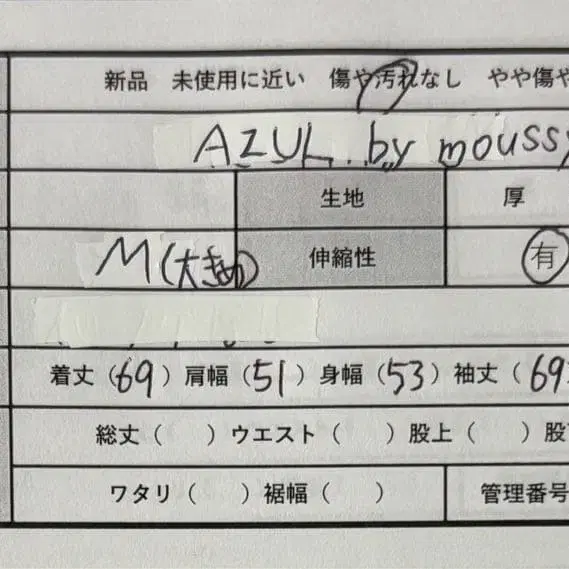 新品 未使用に近い 傷や汚れなし やや傷や
AZUL by moussy
生地 厚
M(大きめ) 伸縮性 有
着丈(69) 肩幅(51) 身幅(53) 袖丈(69
総丈( ) ウエスト( ) 股上( ) 股
ワタリ( ) 裾幅( ) 管理番号